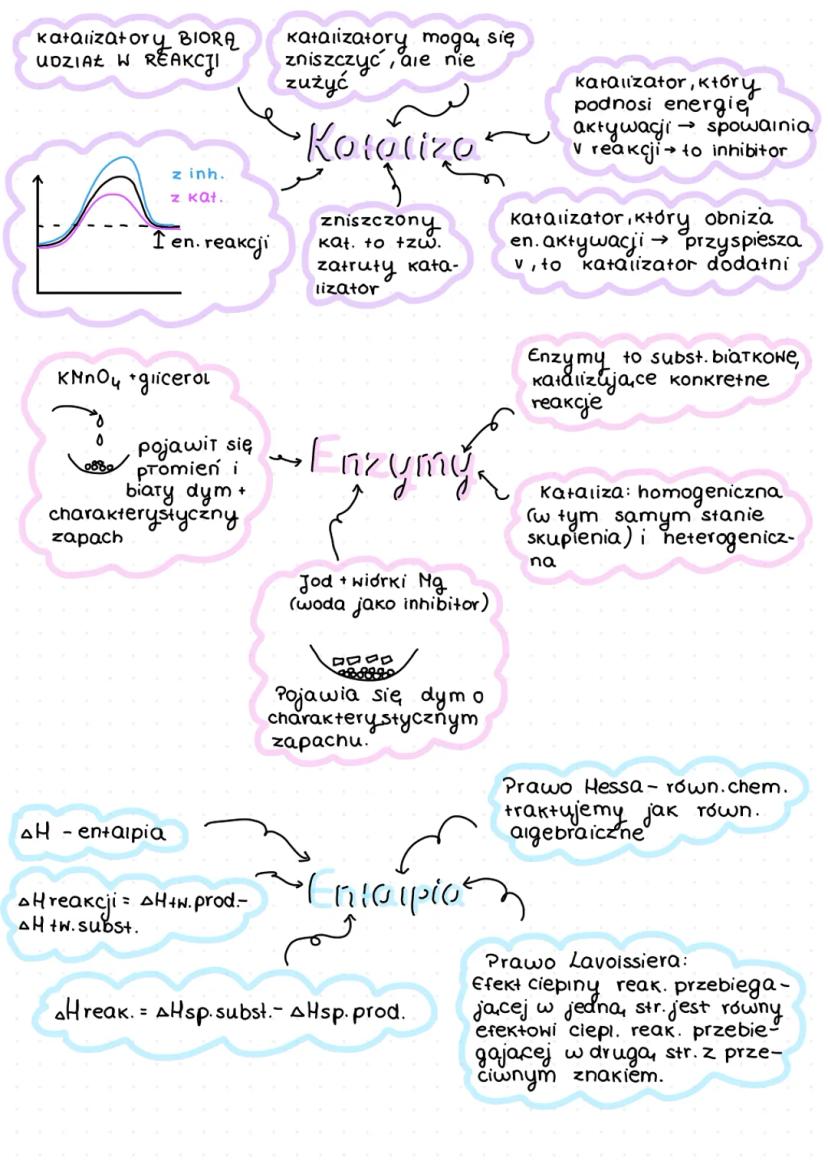 Katalizatory BIORĄ
UDZIAŁ W REAKCJI
Katalizatory mogą się
zniszczyć, ale nie
zużyć
Katalizator, który
podnosi energię
aktywacji → spowalnia
v reakcji → to inhibitor
Kataliza
z inh.
z kat.
en. reakcji
zniszczony
kat. to tzw.
zatruty kata-
lizator
Katalizator, który obniża
en. aktywacji → przyspiesza
v, to katalizator dodatni
KMnO4 + glicerol
pojawił się
płomień i
biały dym +
charakterystyczny
zapach
Enzymy
Enzymy to subst. białkowe,
katalizujące konkretne
reakcje
Kataliza: homogeniczna
(w tym samym stanie
skupienia) i heterogenicz-
na
Jod + wiórki Mg
(woda jako inhibitor)
Pojawia się dym o
charakterystycznym
zapachu.
Prawo Hessa - równ. chem.
traktujemy jak równ.
algebraiczne
ΔH - entalpia
Entalpia
ΔH reakcji = ΔH tw. prod. -
ΔH tw. subst.
ΔH reak. = ΔH sp. subst. - ΔH sp. prod.
Prawo Lavoissiera:
Efekt cieplny reak. przebiega-
jącej w jedną str. jest równy
efektowi ciepl. reak. przebie-
gającej w drugą str. z prze-
ciwnym znakiem.